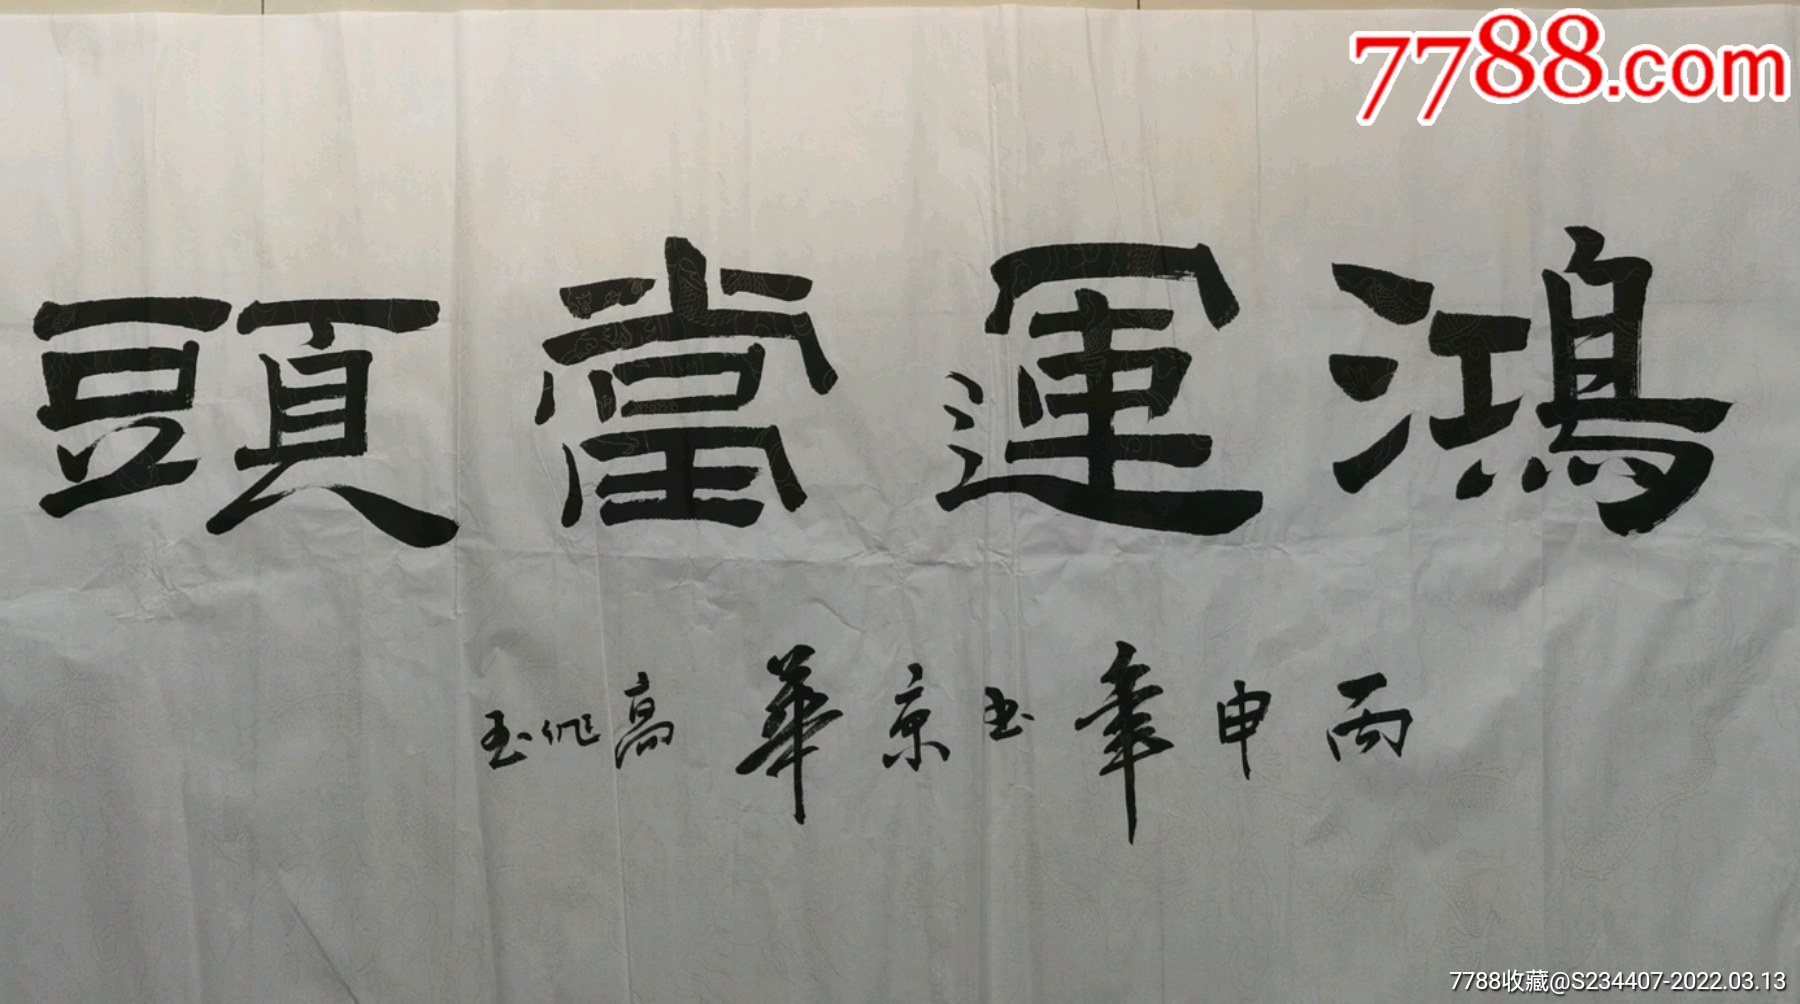 7788.com
鴻運當頭
丙申年 京華高 玉
7788收藏@S234407-2022.03.13